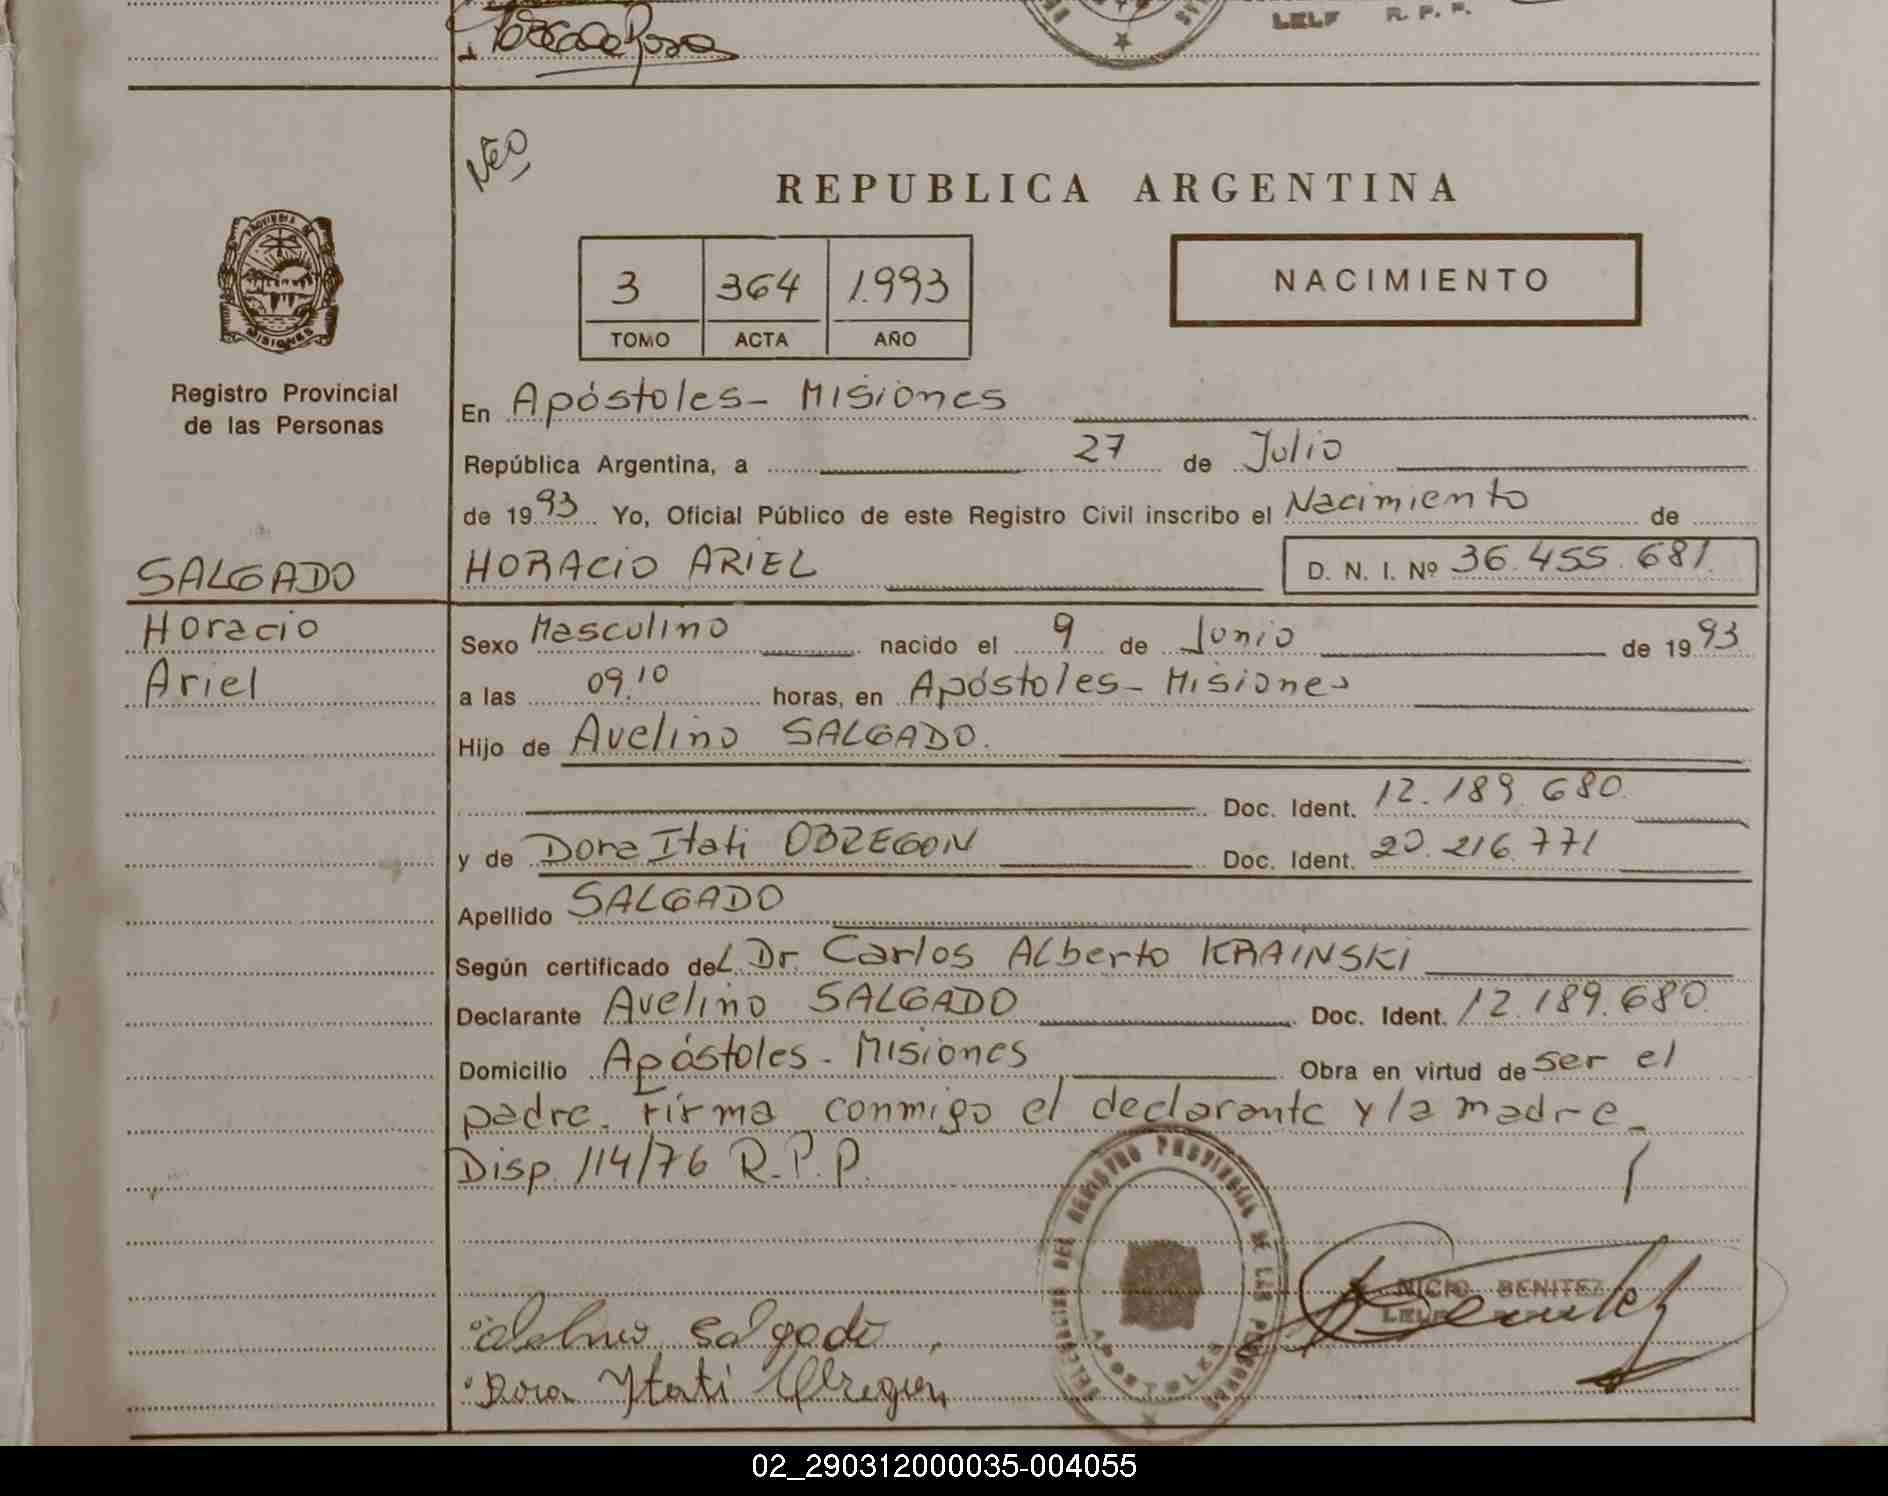 LELF R. P. P.
REPUBLICA ARGENTINA
3 364 1.993
TOMO ACTA AÑO
NACIMIENTO
PROVINCIA
MISIONES
Registro Provincial
de las Personas
En Apóstoles - Misiones
República Argentina, a 27 de Julio
de 1993 Yo, Oficial Público de este Registro Civil inscribo el Nacimiento de
SALGADO HORACIO ARIEL D. N. I. Nº 36.455.681.
Horacio Sexo Masculino nacido el 9 de Junio de 1993
Ariel a las 09.10 horas, en Apóstoles - Misiones
Hijo de Avelino SALGADO.
Doc. Ident. 12.189.680.
y de Dora Itati OBREGON Doc. Ident. 20.216.771
Apellido SALGADO
Según certificado del Dr. Carlos Alberto KRAINSKI
Declarante Avelino SALGADO Doc. Ident. 12.189.680.
Domicilio Apóstoles - Misiones Obra en virtud de ser el
padre. Firma conmigo el declarante y la madre -
Disp. 114/76 R.P.P.
DEL REGISTRO PROVINCIAL DE LAS PERSONAS
APOSTOLES
NICIO BENITEZ
LELF
Salgado
Dora Ytati Obregon
02_290312000035-004055